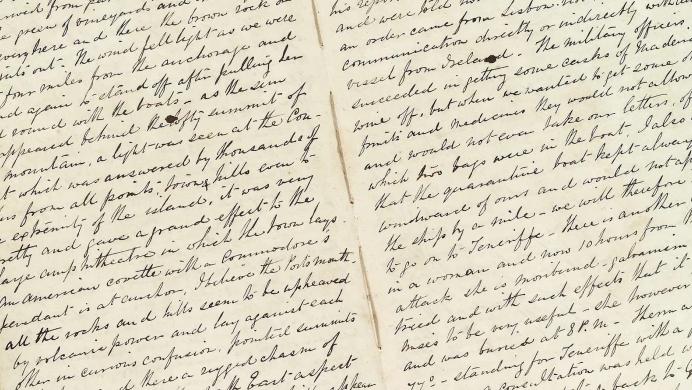 green of vineyards and
every here and there the brown rock
juts out. The wind fell light as we were
four miles from the anchorage and
again to stand off after pulling her
round with the boats - as the sun
appeared behind the lofty summit of
mountain, a light was seen at the Con-
which was answered by thousands of
from all points, towns, hills even to
extremity of the island, it was very
pretty and gave a grand effect to the
large amphitheatre in which the town lays.
An american corvette with a Commodore's
pendant is at anchor, I believe the Portsmouth.
all the rocks and hills seem to be upheaved
by volcanic power and lay against each
other in curious confusion, pointed summits
and there a rugged chasm of
the East aspect
and were told
an order came from Lisbon.
communication directly or indirectly with
vessel from Ireland. The military officers
succeeded in getting some casks of Madeira
come off, but when we wanted to get some
fruits and medicines they would not allow
and would not even take our letters, of
which two bags were in the boat. I also
that the quarantine boat kept always
windward of ours and would not
the ships by a mile - we will therefore
to go on to Teneriffe - there is another
in a woman and now 10 hours from
attack she is moribund - galvanism
tried and with such effects that it
mises to be very useful - she however
and was buried at 8 P.M. - Therm
77° - standing for Teneriffe with a
a consultation was held
back to